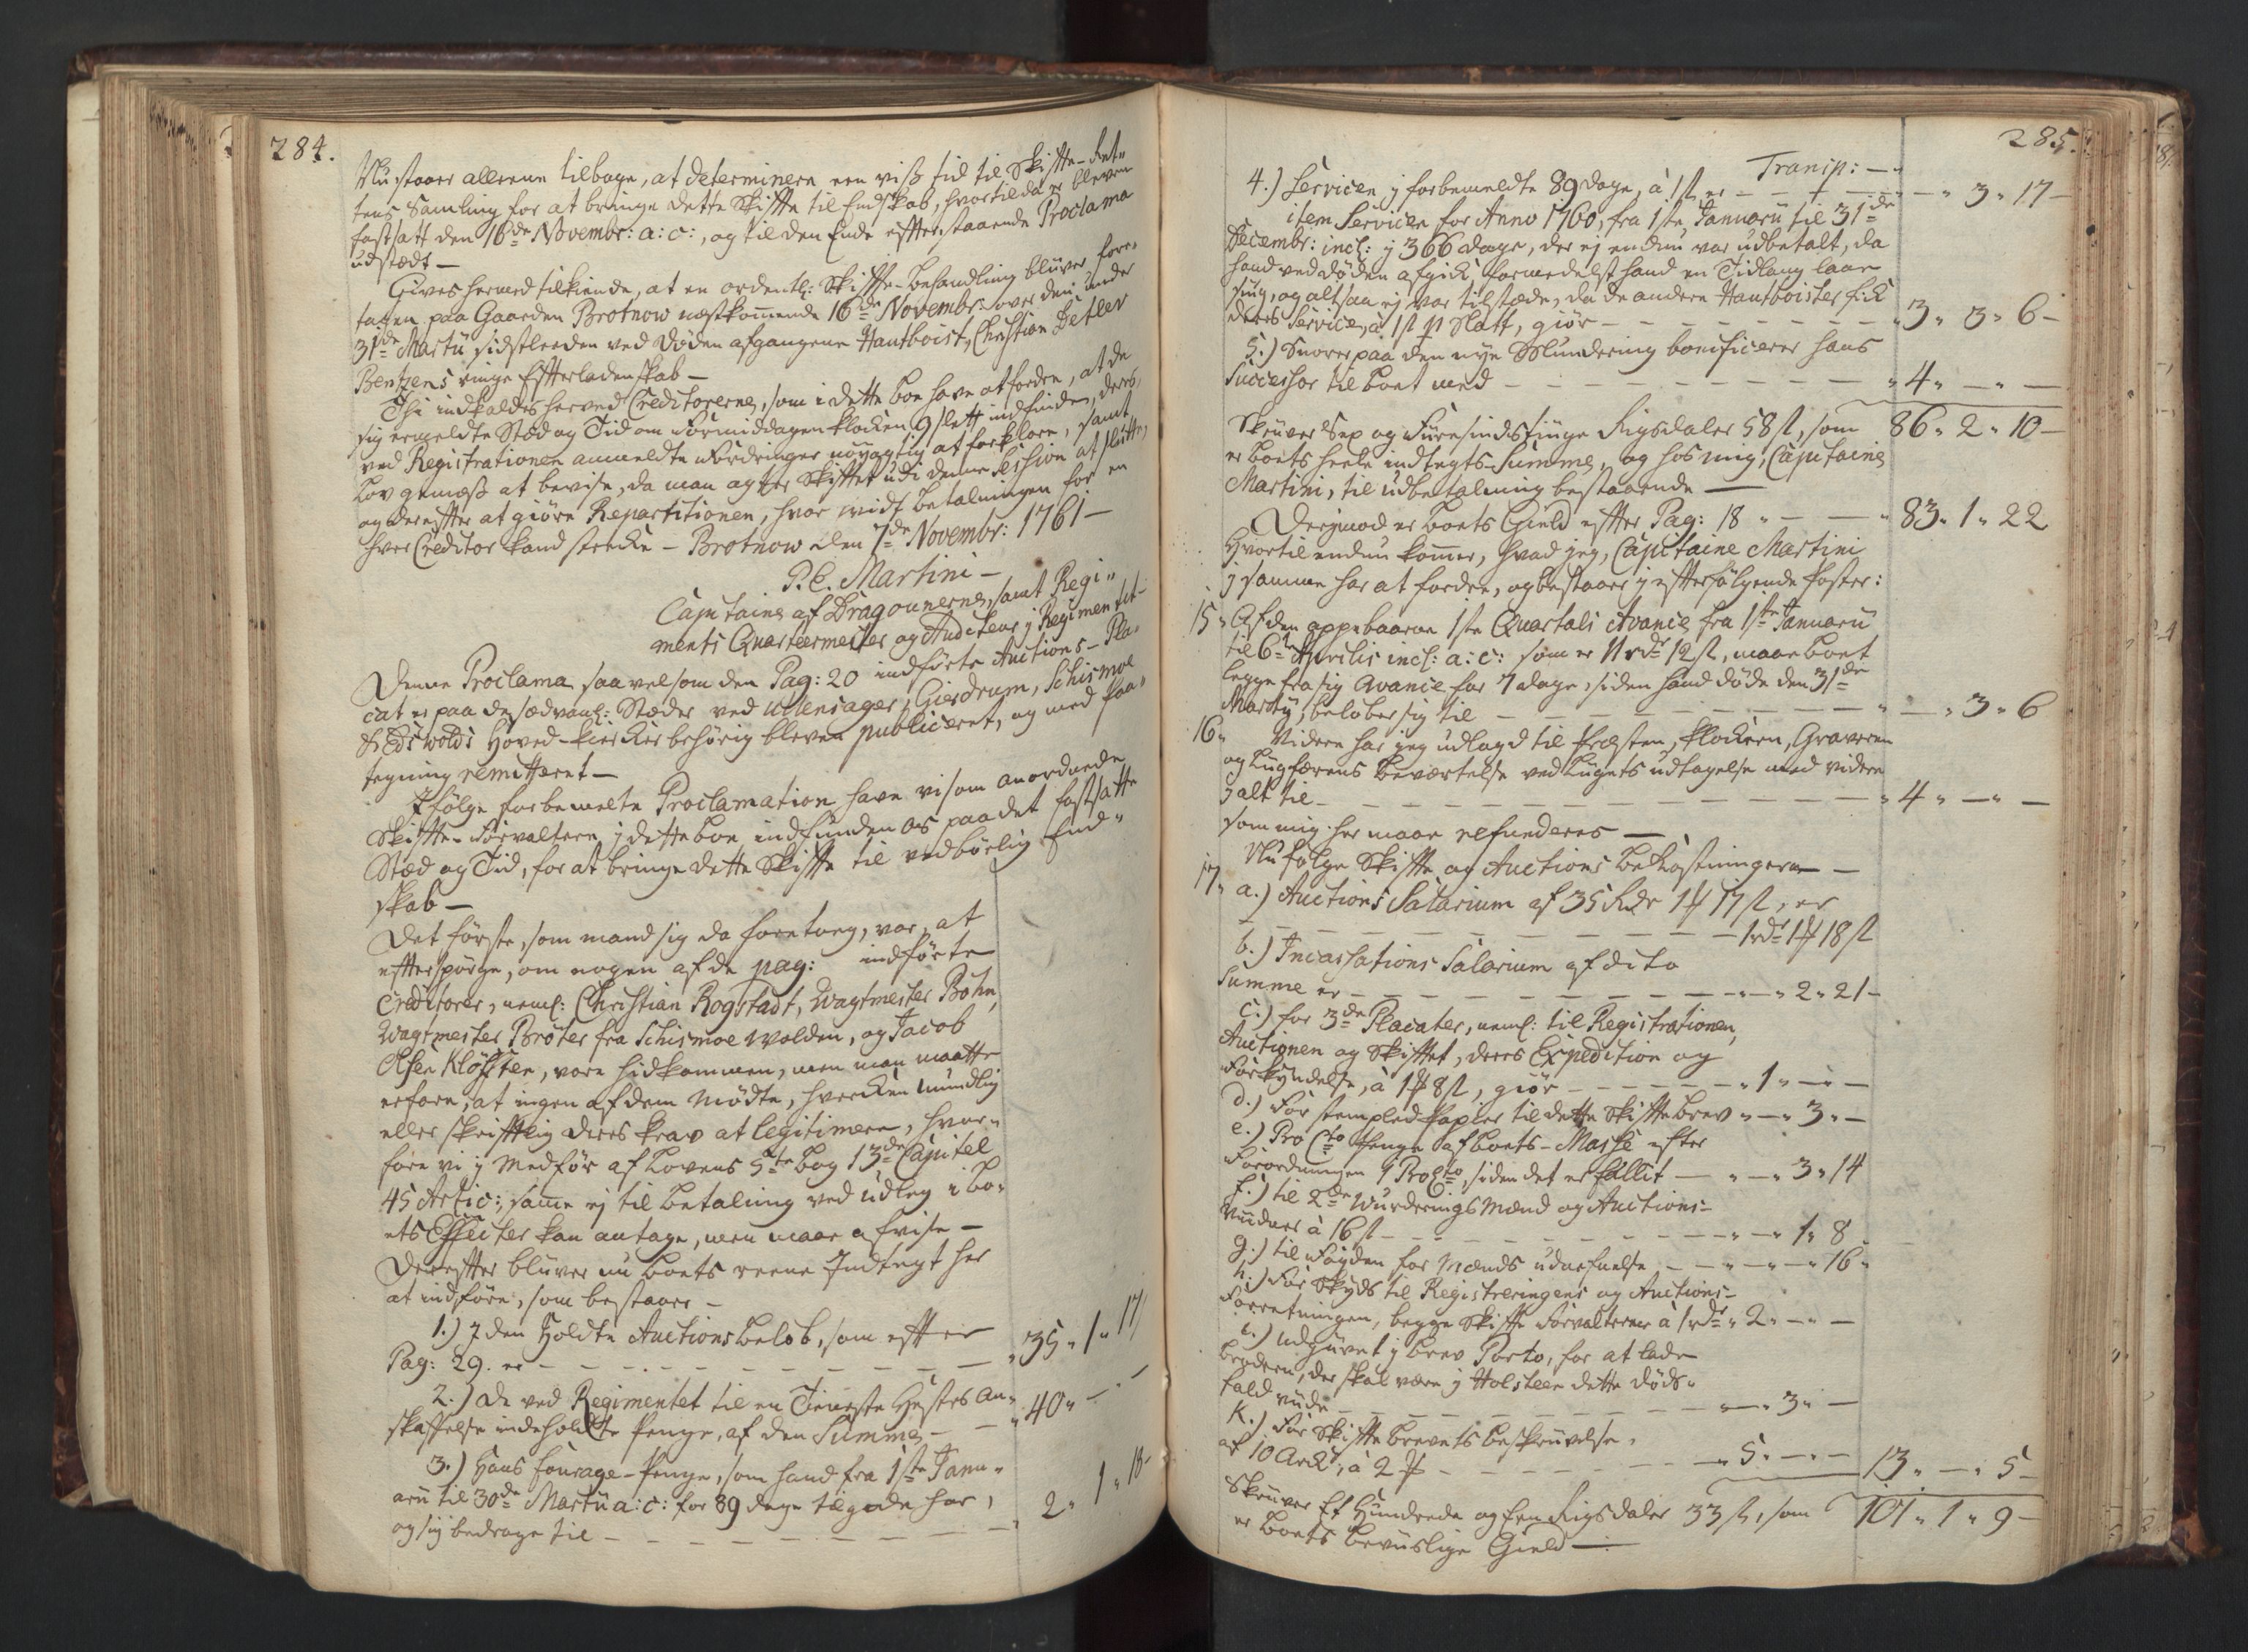 284.
Nu staaer alleene tilbage, at determinere een viss tid til Skifte-Ret-
tens Samling for at bringe dette Skifte til Endskab, hvortil da er bleven
fastsatt den 16de Novembr: a: c:, og til den Ende efterstaaende Proclama
udstædt —
Gives hermed tilkiende, at en ordentl: Skifte-behandling bliver fore-
tagen paa Gaarden Brotnow næstkommende 16de Novembr: over den under
31de Martii sidstleeden ved Døden afgangene Hautboist, Christian Detlev
Bentzens ringe Efterladenskab —
Thi indkaldes herved Creditorerne, som i dette boe have at fordre, at de
sig ermeldte Stæd og Tid om Formiddagen Klocken 9 slett indfinder, deres
ved Registrationen anmeldte Fordringer nöyagtig at forklare, samt
Lov gemæss at bevise, da man agter Skiftet udi denne Session at slutte,
og derefter at giøre Repartitionen, hvor vidt betalningen for en
hver Creditor kand strecke — Brotnow den 7de Novembr: 1761 —
P. C. Martini —
Capitaine af Dragounerne, samt Regi-
ments Quarteermester og Auditeur j Regimentet —
Denne Proclama saavelsom den Pag: 20 indförte Auctions-Pla-
cat er paa de sædvanl: Stæder ved Ullensager, Gierdrum, Schismoe
& Eidswolds Hoved-Kiercker behörig bleven publiceret, og med paa-
tegning remitteret —
Ifölge forbemelte Proclamation have vi som anordnede
Skifte-Forvaltere j dette boe indfunden os paa det fastsatte
Stæd og Tid, for at bringe dette Skifte til vedbörlig End-
skab —
Det förste, som mand sig da foretoeg, var, at
efterspörge, om nogen af de pag: indförte
Creditorer, neml: Christian Rogstadt, Wagtmester Bohn,
Wagtmester Bröter fra Schismoe Wolden, og Jacob
Olsen Klöfften, vare hidkommen, men man maatte
erfare, at ingen af dem mödte, hvercken mundlig
eller skrifftlig deres Krav at legitimere, hvor-
fore vi j Medför af Lovens 5te bog 13de Capitel
45 Artic:, samme ej til betaling ved udleg i bo-
ets Effecter kan antage, men maae afvise —
Derefter bliver nu boets reene Indtegt her
at indföre, som bestaaer —
1.) J den Holdte Auctions belöb, som efter
Pag: 29. er — — — — — 35 " 1 " 17
2.) De ved Regimentet til en Tieneste Hestes An-
skaffelse indeholdte Penge, af den Summe — — 40 " — " —
3.) Hans fourage-Penge, som hand fra 1ste Janu-
arii til 30de Martii a: c: for 89 dage tilgode har,
og sig bedrage til — — — — 2 " 1 " 18
285.
Transp: —
4.) Servicen j forbemeldte 89 dage, à 1 ß er — — — " 3 " 17 —
item Servicen for Anno 1760, fra 1ste Januarii til 31de
Decembr: incl: j 366 dage, der ej endnu var udbetalt, da
hand ved döden afgick formedelst hand en Tidlang laae
siug, og altsaa ej var tilstæde, da de andere Hautboister fick
deres Service, à 1 ß pr Natt, giör — — — " 3 " 3 " 6 —
5.) Snorer paa den nye Mundering bonificerer hans
Successor til boet med — — — — " 4 " — " —
Skriver Sex og Fiiresindstiuge Rigsdaler 58 ß, som 86 " 2 " 10 —
er boets heele indtegts-Summe, og hos mig, Capitaine
Martini, til udbetalning bestaaende —
Derimod er boets Gield efter Pag: 18 " — — " 83 " 1 " 22
Hvortil endnu kommer, hvad jeg, Capitaine Martini
j samme har at fordre, og bestaaer j efterfölgende Poster:
15. Af den oppebaarne 1ste Quartals Avance fra 1ste Januarii
til 6te Aprilis incl: a: c: som er 11 rdr 12 ß, maae boet
legge fra sig Avance for 7 dage, siden hand döde den 31de
Martij, beløber sig til — — — — " — " 3 " 6
16. Videre har jeg udlagd til Præsten, Klockern, Graveren
og Liigfærens beværtelse ved Liigets udtagelse med videre
j alt til — — — — — " 4 " — " —
som mig her maae refunderes —
Nu fölge Skifte og Auctions bekostningerne —
17. a.) Auctions Salarium af 35 Rdr 1 # 17 ß, er
— — — — — 1 rdr 1 # 18 ß
b.) Incassations Salarium af dito
Summe er — — — — — " — " 2 " 21 —
c.) for 3de Placater, neml: til Registrationen,
Auctionen og Skiftet, deres Expedition og
Forkyndelse, à 1 # 8 ß, giör — — — — " 1 " — " —
d.) For stempled Papier til dette Skiftebrev " — " 3 " —
e.) Pro Cto Penge af boets-Masse efter
Forordningen 1 Pro Cto, siden det er fallit — " — " 3 " 14
f.) til 2de Wurderings Mænd og Auctions-
Vidner à 16 ß — — — — — " — " 1 " 8
g.) til Fogden for Mænds udnefnelse — — " — " — " 16 "
h.) For Skyds til Registreringens og Auctions-
Forretningen, begge Skifte Forvalterne à 1 rdr " 2 " — " —
i.) udgivet j brev Porto, for at lade
broderen, der skal være j Holsteen dette Döds-
fald vide — — — — — " — " 3 " —
k.) For Skiftebrevets beskrivelse,
af 10 Ark, à 2 # — — — — " 5 " — " — 13 " — " 5 —
Skriver Et Hundrede og Een Rigsdaler 33 ß, som 101 " 1 " 9 —
er boets beviislige Gield —